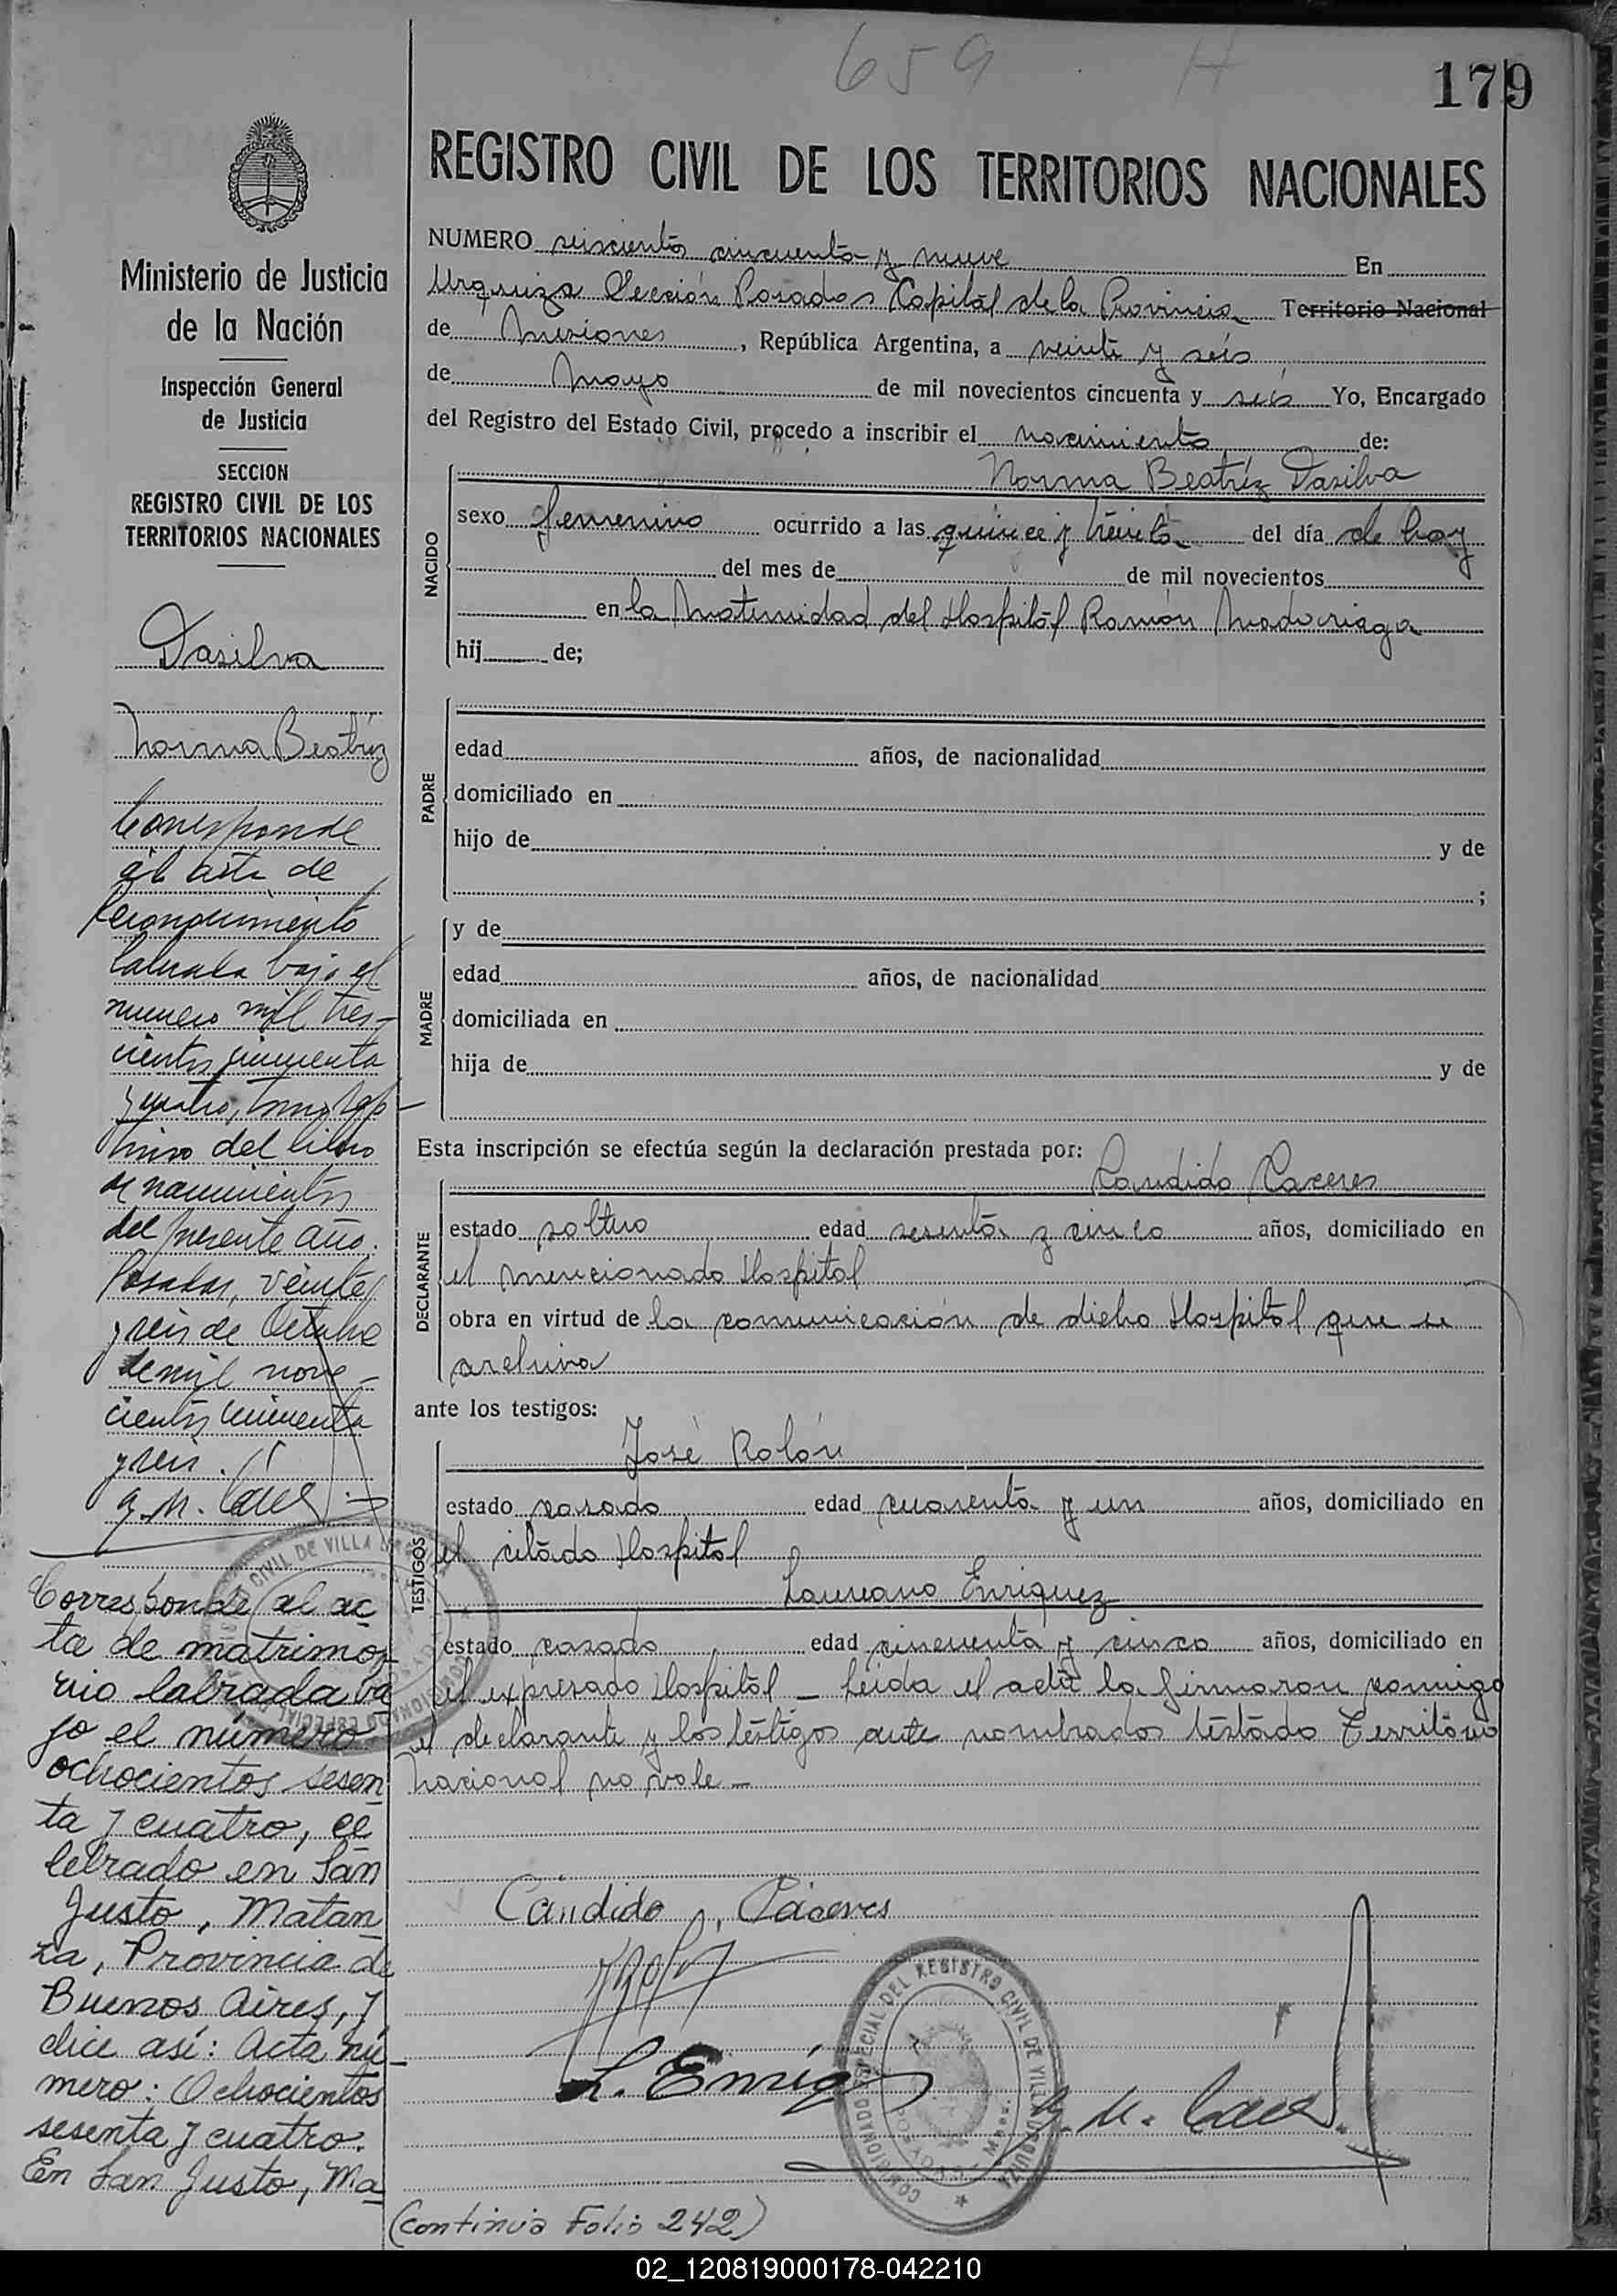 659 H
179
REGISTRO CIVIL DE LOS TERRITORIOS NACIONALES
Ministerio de Justicia
de la Nación
Inspección General
de Justicia
SECCION
REGISTRO CIVIL DE LOS
TERRITORIOS NACIONALES
Dasilva
Norma Beatríz
Corresponde
al acta de
reconocimiento
labrada bajo el
numero mil tres-
cientos cincuenta
y cuatro, tomo
del libro
de nacimientos
del presente año.
Posadas, veinte
y seis de Octubre
de mil nove-
cientos cincuenta
y seis.
Corresponde al ac
ta de matrimo-
nio labrada ba
jo el número
ochocientos sesen
ta y cuatro, ce
lebrado en San
Justo, Matan
za, Provincia de
Buenos Aires, y
dice así: Acta nú-
mero: Ochocientos
sesenta y cuatro.
En San Justo, Ma-
NUMERO seiscientos cincuenta y nueve En
Urquiza Sección Posadas Capital de la Provincia Territorio Nacional
de Misiones, República Argentina, a veinte y seis
de Mayo de mil novecientos cincuenta y seis Yo, Encargado
del Registro del Estado Civil, procedo a inscribir el nacimiento de:
NACIDO
Norma Beatríz Dasilva
sexo femenino ocurrido a las quince y treinta del día de hoy
del mes de de mil novecientos
en la Maternidad del Hospital Ramón Madariaga
hij de;
PADRE
edad años, de nacionalidad
domiciliado en
hijo de y de
;
MADRE
y de
edad años, de nacionalidad
domiciliada en
hija de y de
Esta inscripción se efectúa según la declaración prestada por:
DECLARANTE
Candido Caceres
estado soltero edad sesenta y cinco años, domiciliado en
el mencionado Hospital
obra en virtud de la comunicación de dicho Hospital que se
archiva
ante los testigos:
TESTIGOS
José Rolón
estado casado edad cuarenta y un años, domiciliado en
el citado Hospital
Laureano Enriquez
estado casado edad cincuenta y cinco años, domiciliado en
el expresado Hospital _ Leida el acta la firmaron conmigo
el declarante y los testigos ante nombrados testado Territorio
Nacional no vale _
Cándido Cáceres
L. Enriq
COMISIONADO ESPECIAL DEL REGISTRO CIVIL DE VILLA URQUIZA
(Continúa Folio 242)
02_120819000178-042210